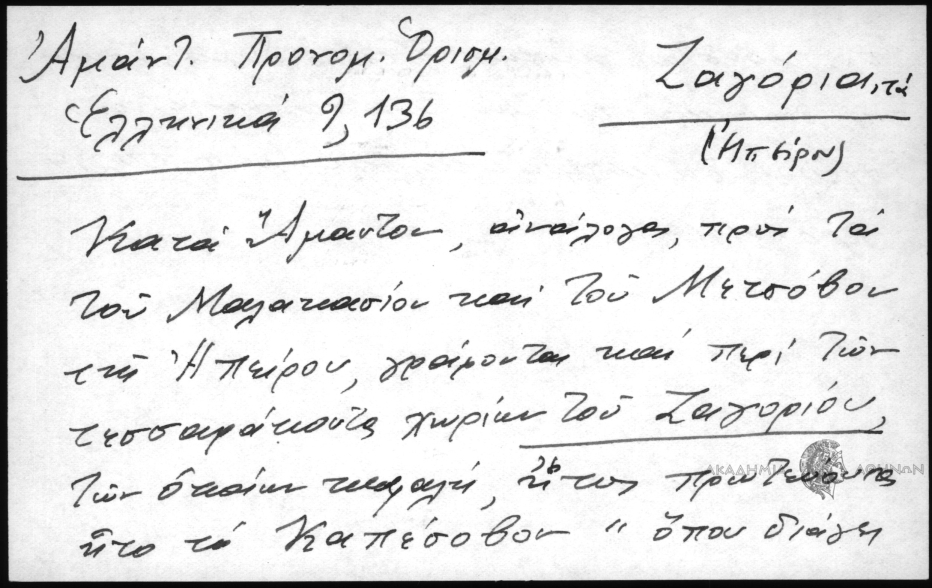 Ἀμάντ. Προνομ. Ὁρισμ.
Ἑλληνικά 9, 136
Ζαγόρια, τά
(Ἠπείρου)
Κατά Ἄμαντον, ἀνάλογα, πρός τά
τοῦ Μαλακασίου καί τοῦ Μετσόβου
τῆς Ἠπείρου, γράφονται καί περί τῶν
τεσσαράκοντα χωρίων τοῦ Ζαγορίου,
τῶν ὁποίων κεφαλή, πρωτεύουσα
ἦτο τό Καπέσοβον " ὅπου διάγει
ΑΚΑΔΗΜΙΑ ΑΘΗΝΩΝ